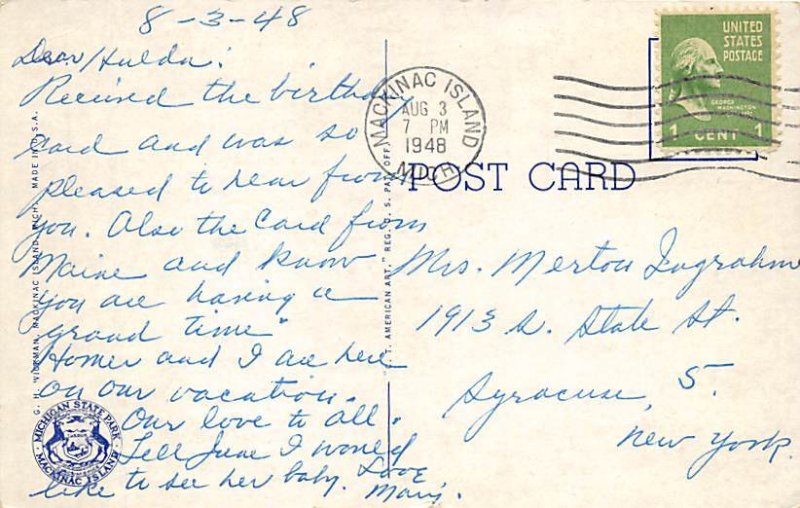 8-3-48
Dear Hulda:
Received the birthday
card and was so
pleased to hear from
you. Also the card from
Maine and know
you are having a
grand time"
Homer and I are here
on our vacation.
Our love to all.
Tell June I would
like to see her baby. Love
MACKINAC ISLAND
AUG 3
7 PM
1948
MICH
UNITED
STATES
POSTAGE
GEORGE
WASHINGTON
1 CENT 1
POST CARD
Mrs. Merton Ingraham
1913 S. State St.
Syracuse, 5.
New York.
MICHIGAN STATE PARK
MACKINAC ISLAND
MACKINAC ISLAND, MICH. MADE IN U.S.A.
"C.T. AMERICAN ART," REG. U.S. PAT. OFF.